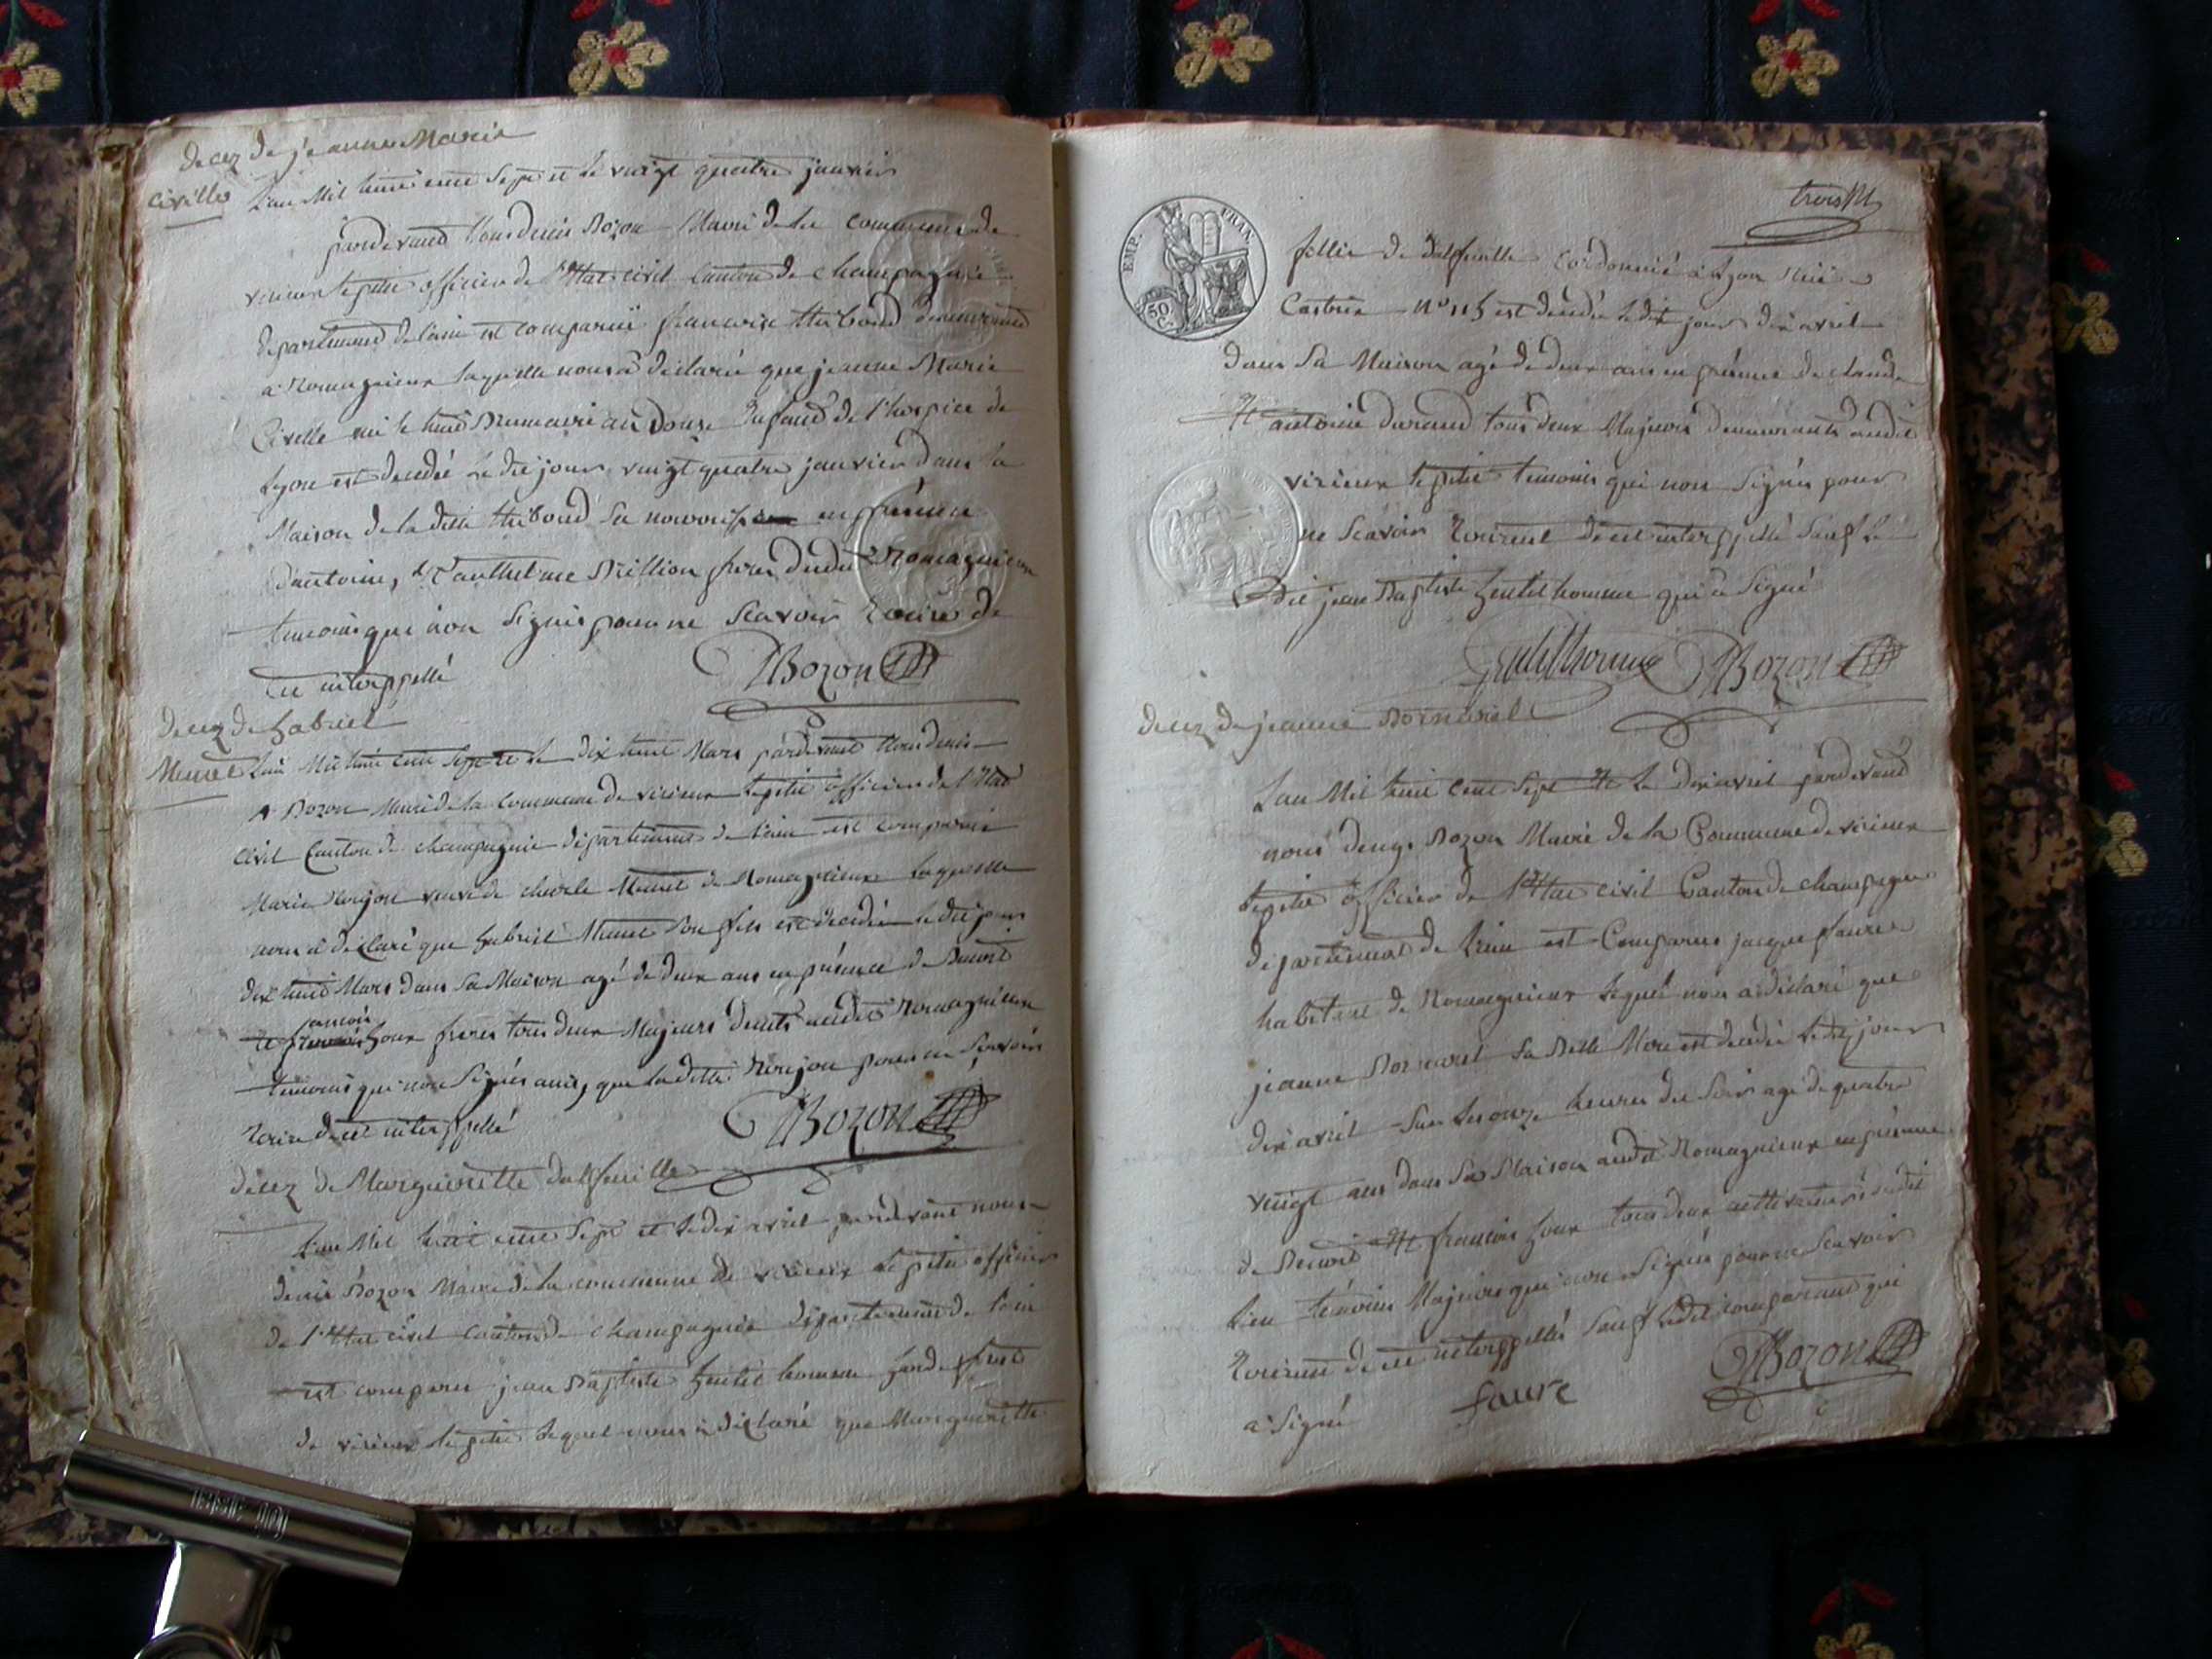 decez de jeanne Marie
Civille L'an Mil huit cent Sept et le vingt quatre janvier
pardevand Nous denis Bozon Maire de la commune de
virieux le petit officier de l'Etat civil Canton de champagnie
departement de l'ain est comparüe francoise thibaud demeurand
a Romagnieux laquelle nous a déclaré que jeanne Marie
Civille né le huit Brumaire an douze Enfand de l'hospice de
Lyon est decedé le dit jour vingt quatre janvier dans la
Maison de la ditte thibaud Sa nourrisse en présence
d'antoine, et d'anthelme Million freres dudit Romagnieux
temoins qui non Signés pour ne Scavoir Ecrire de
ce interppellé
DBozon
decez de gabriel
Meunet L'an Mil huit cent Sept et le dix huit Mars pardevant Nous denis
Bozon Maire de la Commune de virieux le petit officier de l'Etat
civil Canton de champagnie département de l'ain est comparüe
Marie Roujon veuve de charle Meunet de Romagnieux laquelle
nous a déclaré que gabriel Meunet Son fils est decedé le dit jour
dix huit Mars dans Sa Maison agé de deux ans en présence de Benoit
et francois goux freres tous deux Majeurs demts audit Romagnieux
temoins qui non Signés ainsy que la ditte Roujon pour ne Scavoir
Ecrire de ce interppellé
DBozon
decez de Margueritte dalfeuille
L'an Mil huit cent Sept et le dix avril pardevant nous
denis Bozon Maire de la commune de virieux le petit officier
de l'Etat civil canton de champagnie département de l'ain
est comparu jean Baptiste gentil homme garde forest
de virieux le petit lequel nous a déclaré que Margueritte
trois
EMP. FRAN.
50 C.
fillie de dalfeuille Cordonnié a Lyon Rüe
Castrie N° 115 est decedée le dit jour dix avril
dans Sa Maison agé de deux ans en présence de claude
Et antoine durand tous deux Majeurs demeurants audit
virieux le petit temoins qui non Signés pour
ne Scavoir Ecrirent de ce interppellé Sauf le
dit jean Baptiste gentil homme qui a Signé
Gentilhomme DBozon
decez de jeanne Bornarel
L'an Mil huit Cent Sept Et le dix avril pardevand
nous denys Bozon Maire de la Commune de virieux
le petit officier de l'Etat civil Canton de champagne
département de l'ain est Comparus jacque faure
habitant de Romagnieux lequel nous a déclaré que
jeanne Bornarel Sa Belle Mere est decedé le dit jour
dix avril Sur les onze heures du Soir agé de quatre
vingt ans dans Sa Maison audit Romagnieux en présence
de Benoit Et francois goux tous deux cultivateurs audit
lieu témoins Majeurs qui non Signés pour ne Scavoir
Ecrirent de ce interppellés Sauf ledit comparant qui
a Signé
faure
DBozon